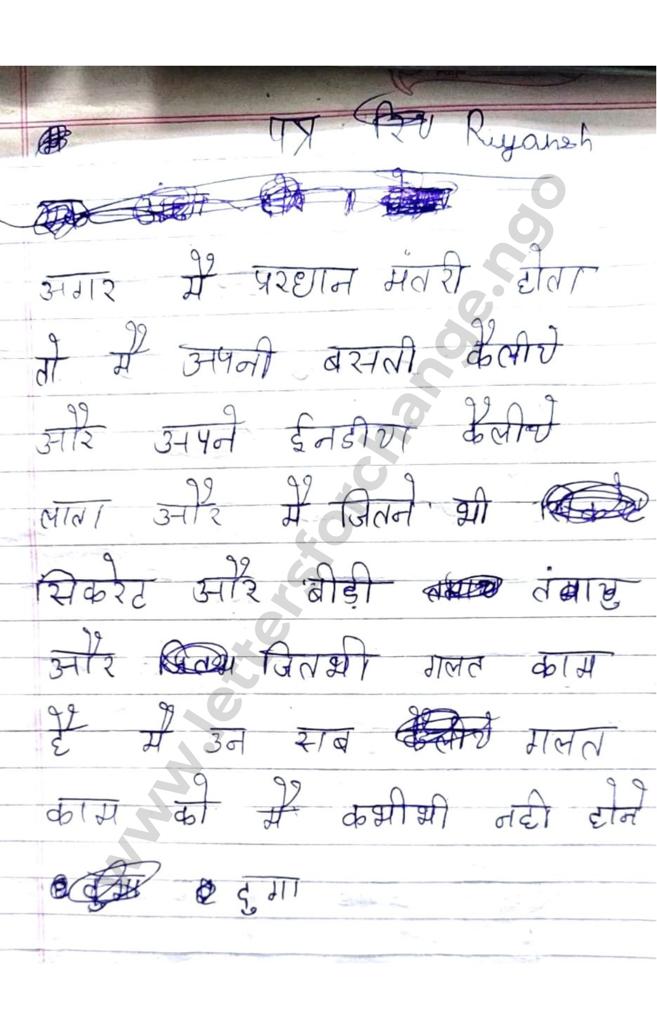 पत्र Riyansh
अगर मै प्रधान मंतरी होता
तो मै अपनी बसती कैलीये
और अपने ईनडीया कैलीये
लाता और मै जितने भी
सिकरेट और बीड़ी तंबाखु
और जितभी गलत काम
है मै उन सब गलत
काम को मै कभीभी नही होने
दुगा
www.lettersforchange.ngo